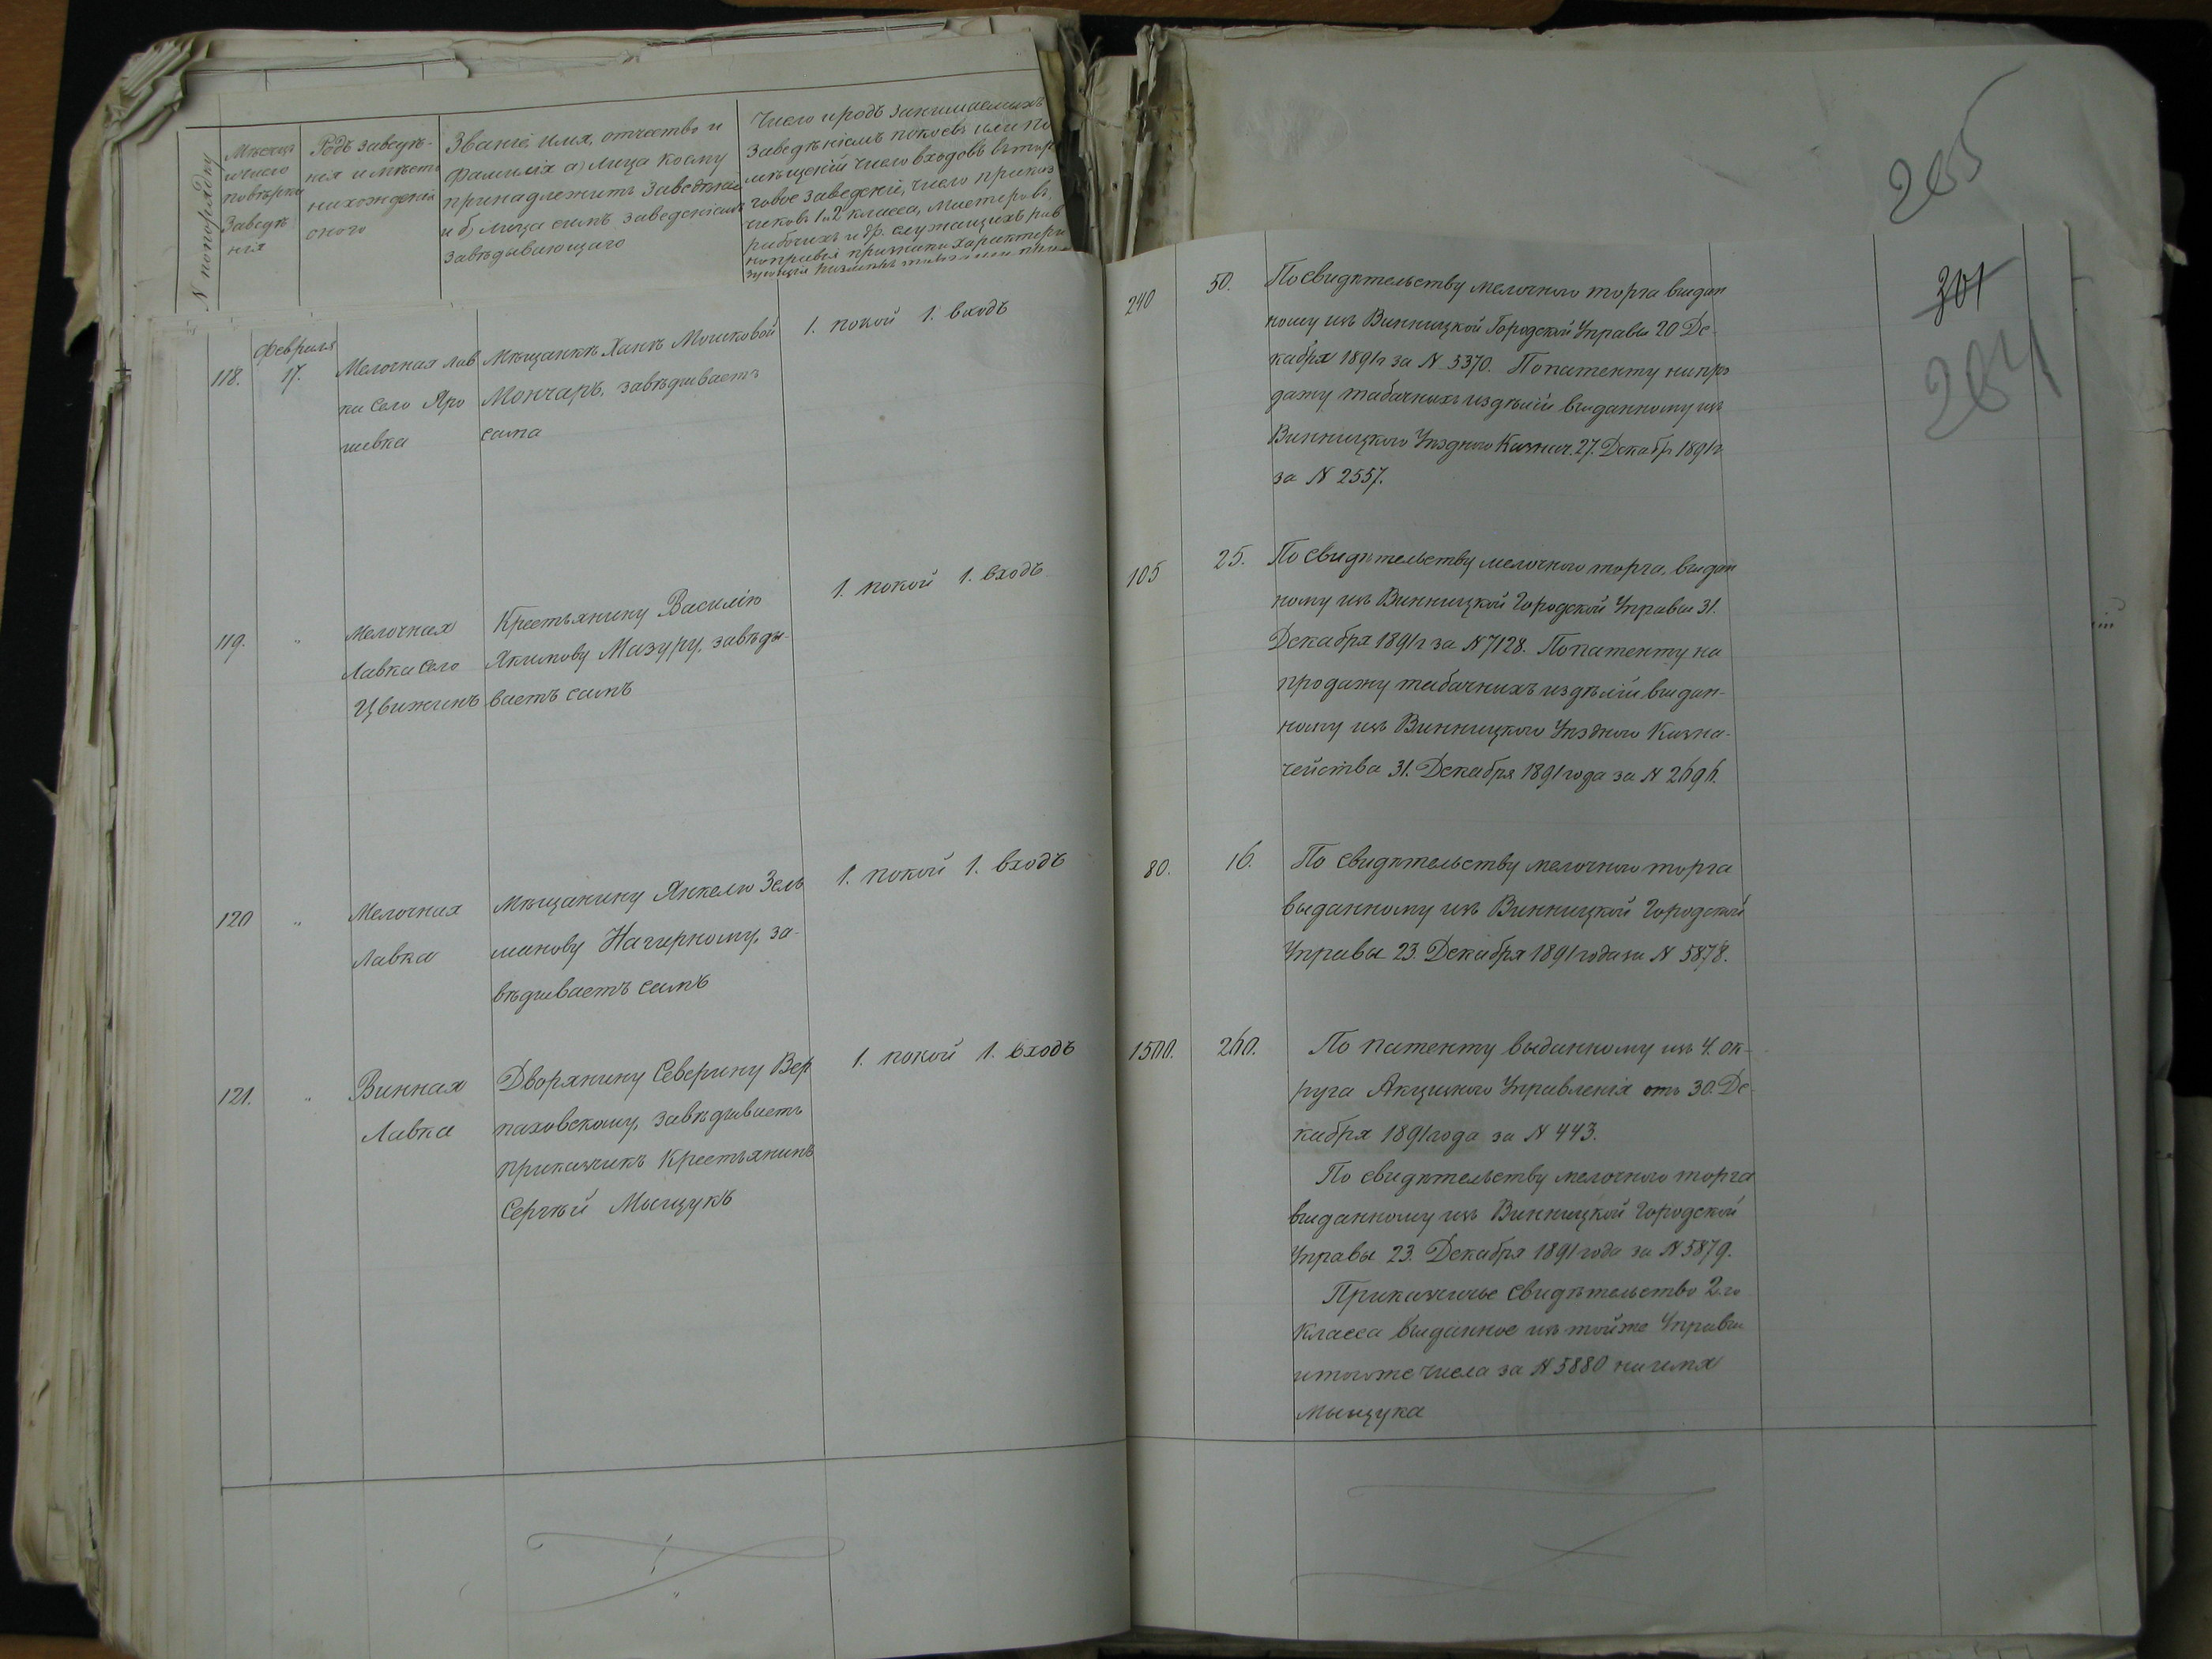 N по порядку
Мѣсяцъ
и число
повѣрки
Заведѣ
нія
Родъ заведѣ-
нія и мѣсто
нахожденія
оного
Званіе, имя, отчество и
фамилія а) лица коему
принадлежитъ Заведѣніе
и б) лица симъ заведѣніемъ
завѣдывающаго
Число и родъ занимаемыхъ
Заведѣніемъ покоевъ или по
мѣщеній число входовъ въ тор
говое заведѣніе, число приказ
чиковъ 1 и 2 класса, мастеровъ,
рабочихъ и др. служащихъ рав
118.
Февраля
17.
Мелочная лав
ка село Яро
шевка
Мѣщанкѣ Ханѣ Мошковой
Мончаръ, завѣдываетъ
сама
1. покой 1. входъ
119.
"
Мелочная
Лавка село
Цвижинъ
Крестьянину Василію
Якимову Мазуру, завѣды-
ваетъ самъ
1. покой 1. входъ
120
"
Мелочная
Лавка
Мѣщанину Янкелю Зель
манову Нагирному, за-
вѣдываетъ самъ
1. покой 1. входъ
121.
"
Винная
Лавка
Дворянину Северину Вер
паховскому, завѣдываетъ
прикащикъ Крестьянинъ
Сергѣй Мыщукъ
1. покой 1. входъ
265
301
264
240
50.
По свидѣтельству мелочного торга выдан
ному изъ Винницкой Городской Управы 20 Де-
кабря 1891 г за N 5370. По патенту на про
дажу табачныхъ издѣлій выданному изъ
Винницкого Уѣздного Казнач. 27. Декабр 1891 г
за N 2557.
105
25.
По свидѣтельству мелочного торга, выдан
ному изъ Винницкой Городской Управы 31.
Декабря 1891 г за N 7128. По патенту на
продажу табачныхъ издѣлій выдан-
ному изъ Винницкого Уѣздного Казна-
чейства 31. Декабря 1891 года за N 2696.
80.
16.
По свидѣтельству мелочного торга
выданному изъ Винницкой Городской
Управы 23. Декабря 1891 года за N 5878.
1500.
260.
По патенту выданному изъ 4. ок-
руга Акцизного Управленія отъ 30. Де-
кабря 1891 года за N 443.
По свидѣтельству мелочного торга
выданному изъ Винницкой Городской
Управы 23. Декабря 1891 года за N 5879.
Приказчичье свидѣтельство 2-го
Класса выданное изъ той же Управы
и того же числа за N 5880 на имя
Мыщука